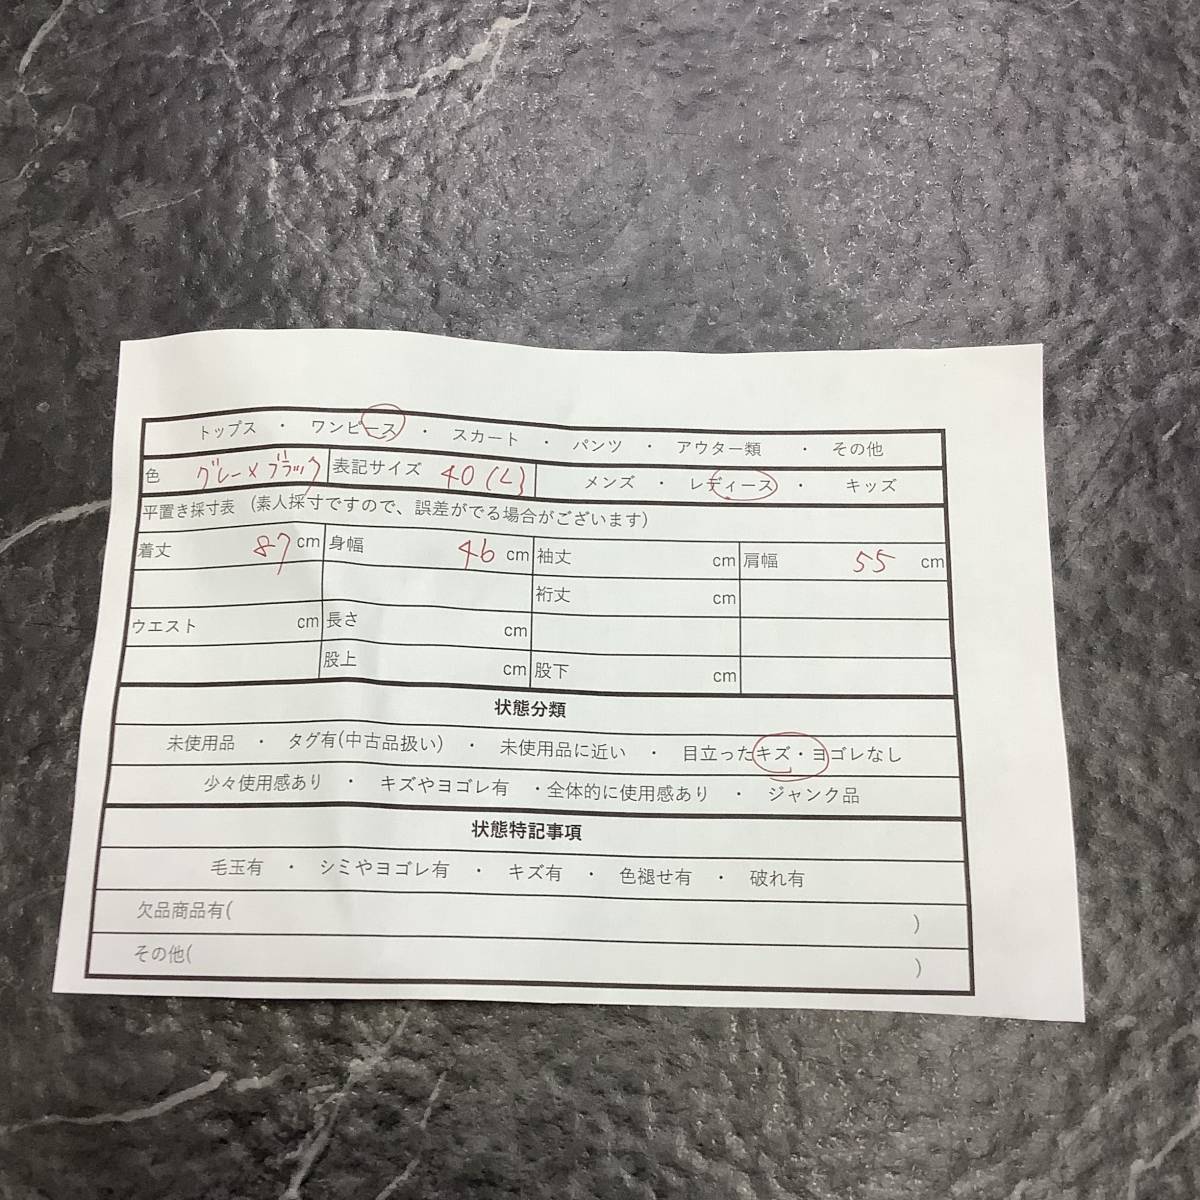 トップス ・ ワンピース ・ スカート ・ パンツ ・ アウター類 ・ その他
色 グレー×ブラック 表記サイズ 40(L) メンズ ・ レディース ・ キッズ
平置き採寸表 (素人採寸ですので、誤差がでる場合がございます)
着丈 87 cm 身幅 46 cm 袖丈 cm 肩幅 55 cm
裄丈 cm
ウエスト cm 長さ cm
股上 cm 股下 cm
状態分類
未使用品 ・ タグ有(中古品扱い) ・ 未使用品に近い ・ 目立ったキズ・ヨゴレなし
少々使用感あり ・ キズやヨゴレ有 ・全体的に使用感あり ・ ジャンク品
状態特記事項
毛玉有 ・ シミやヨゴレ有 ・ キズ有 ・ 色褪せ有 ・ 破れ有
欠品商品有( )
その他( )